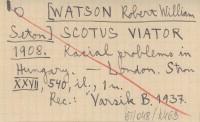 [WATSON Robert William
Seton] SCOTUS VIATOR
1908. Racial problems in
Hungary. — London.
XXVII, 540, il., 1 m.
Rec.: Varsik B. 1937.